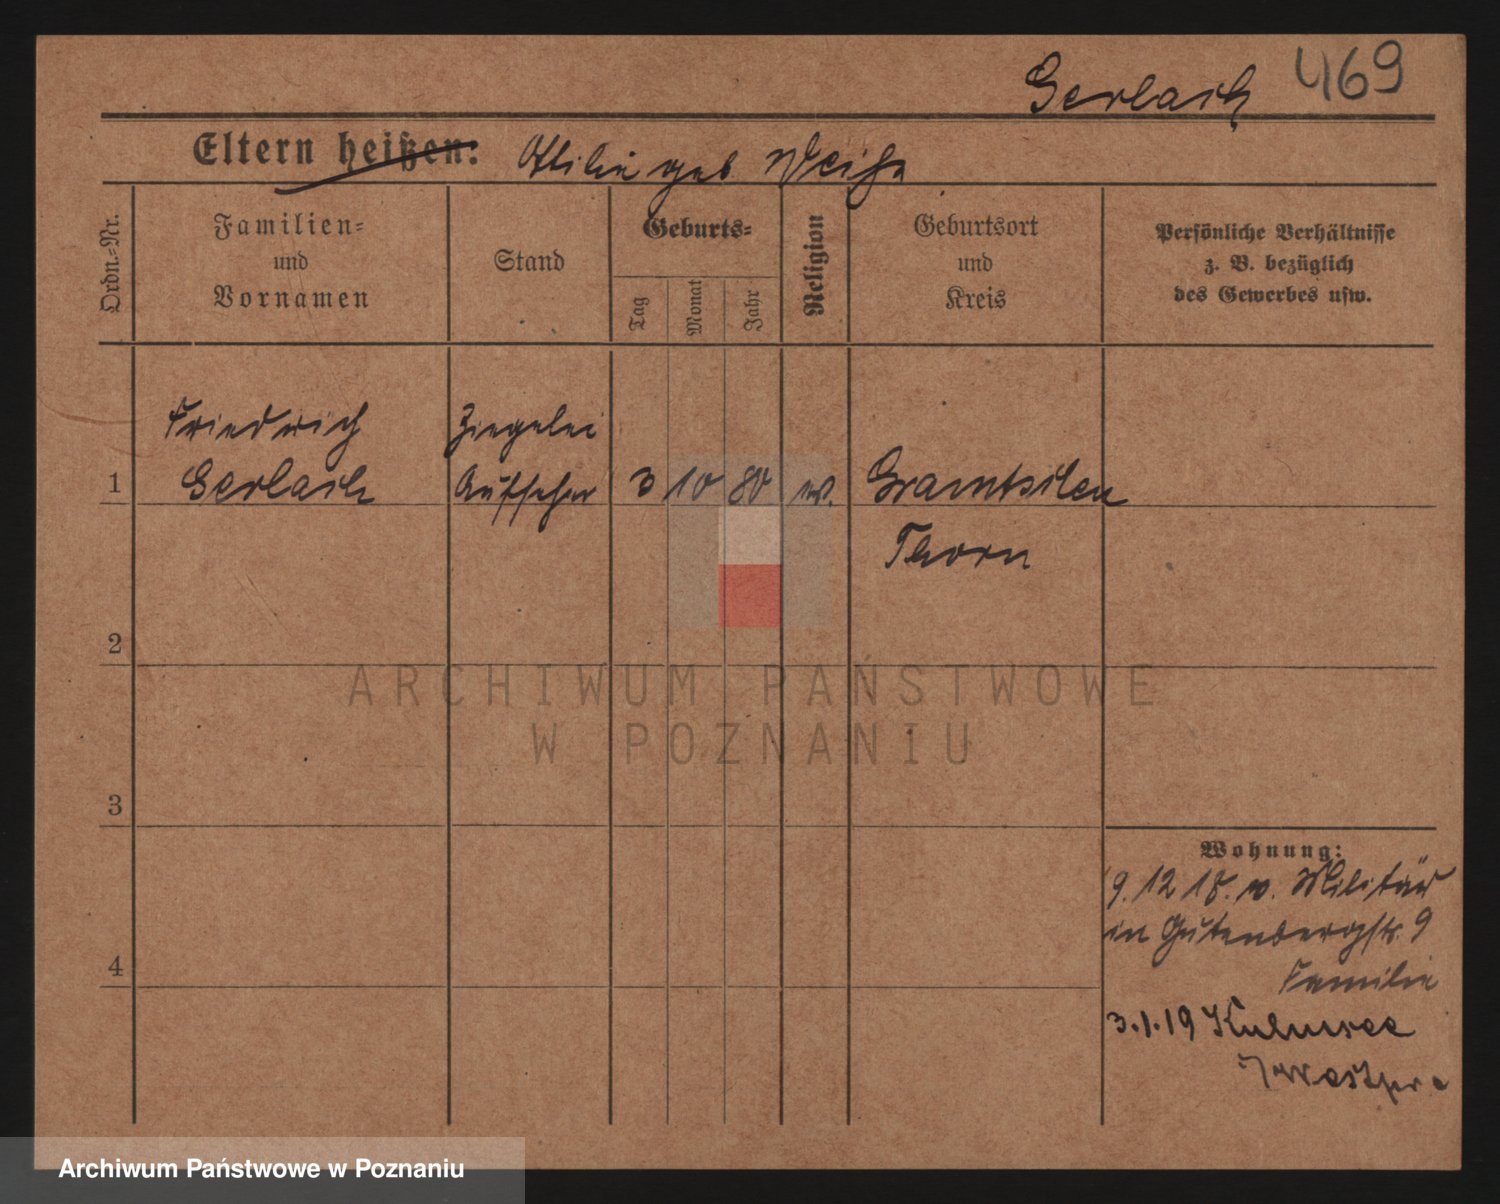 Gerlach 469
Eltern heißen: Ottilie geb Weiß
Ordn.-Nr.
Familien-
und
Vornamen
Stand
Geburts-
Tag
Monat
Jahr
Religion
Geburtsort
und
Kreis
Persönliche Verhältnisse
z. B. bezüglich
des Gewerbes usw.
Friedrich Ziegelei
1 Gerlach Aufseher 3 10 80 ev. Gramtschen
Thorn
2
ARCHIWUM PAŃSTWOWE
W POZNANIU
3
Wohnung:
9. 12 18. v. Militär
in Gutenbergstr. 9
4
Familie
3.1.19 Kulmsee
Westpr.
Archiwum Państwowe w Poznaniu